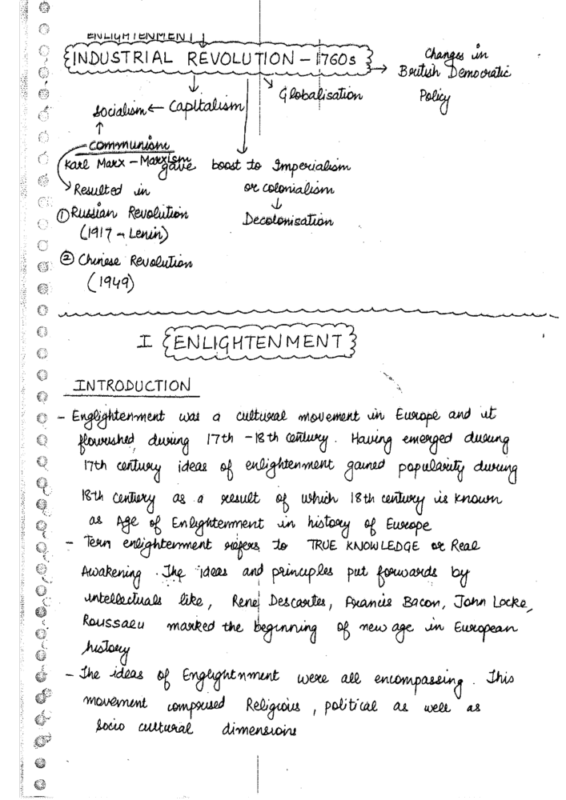 ENLIGHTENMENT
INDUSTRIAL REVOLUTION - 1760s → Changes in
British Democratic
Policy
Socialism ← Capitalism
Globalisation
↑
communism
Karl Marx - Marxism
gave boost to Imperialism
or colonialism
↓
Decolonisation
Resulted in
① Russian Revolution
(1917 - Lenin)
② Chinese Revolution
(1949)
I ENLIGHTENMENT
INTRODUCTION
- Englightenment was a cultural movement in Europe and it
flourished during 17th - 18th century. Having emerged during
17th century ideas of enlightenment gained popularity during
18th century as a result of which 18th century is known
as Age of Enlightenment in history of Europe
- Term enlightenment refers to TRUE KNOWLEDGE or Real
Awakening. The ideas and principles put forwards by
intellectuals like, Rene Descartes, Francis Bacon, John Locke,
Roussaeu marked the beginning of new age in European
history
- The ideas of Englightnment were all encompassing. This
movement comprised Religious, political as well as
Socio cultural dimensions